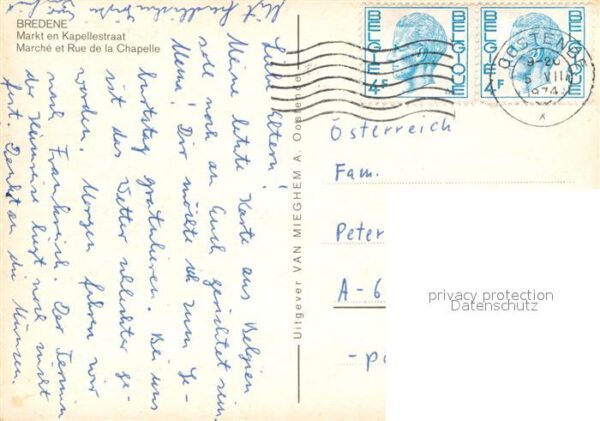 BREDENE
Markt en Kapellestraat
Marché et Rue de la Chapelle
Liebe Eltern!
Meine letzte Karte aus Belgien
soll noch an Euch gerichtet sein.
Mama! Dir möchte ich zum Ge-
burtstag gratulieren. Bei uns
ist das Wetter schlechter ge-
worden. Morgen fahren wir
nach Frankreich. Der Termin
der Heimreise liegt noch nicht
fest. Denkt an die Münzen.
Mit freundlichen
Uitgever VAN MIEGHEM A. Oostende
BELGIE BELGIQUE 4F
BELGIE BELGIQUE 4F
OOSTENDE
9-20
5 VIII
1974
x
Österreich
Fam.
Peter
A-6
privacy protection
Datenschutz